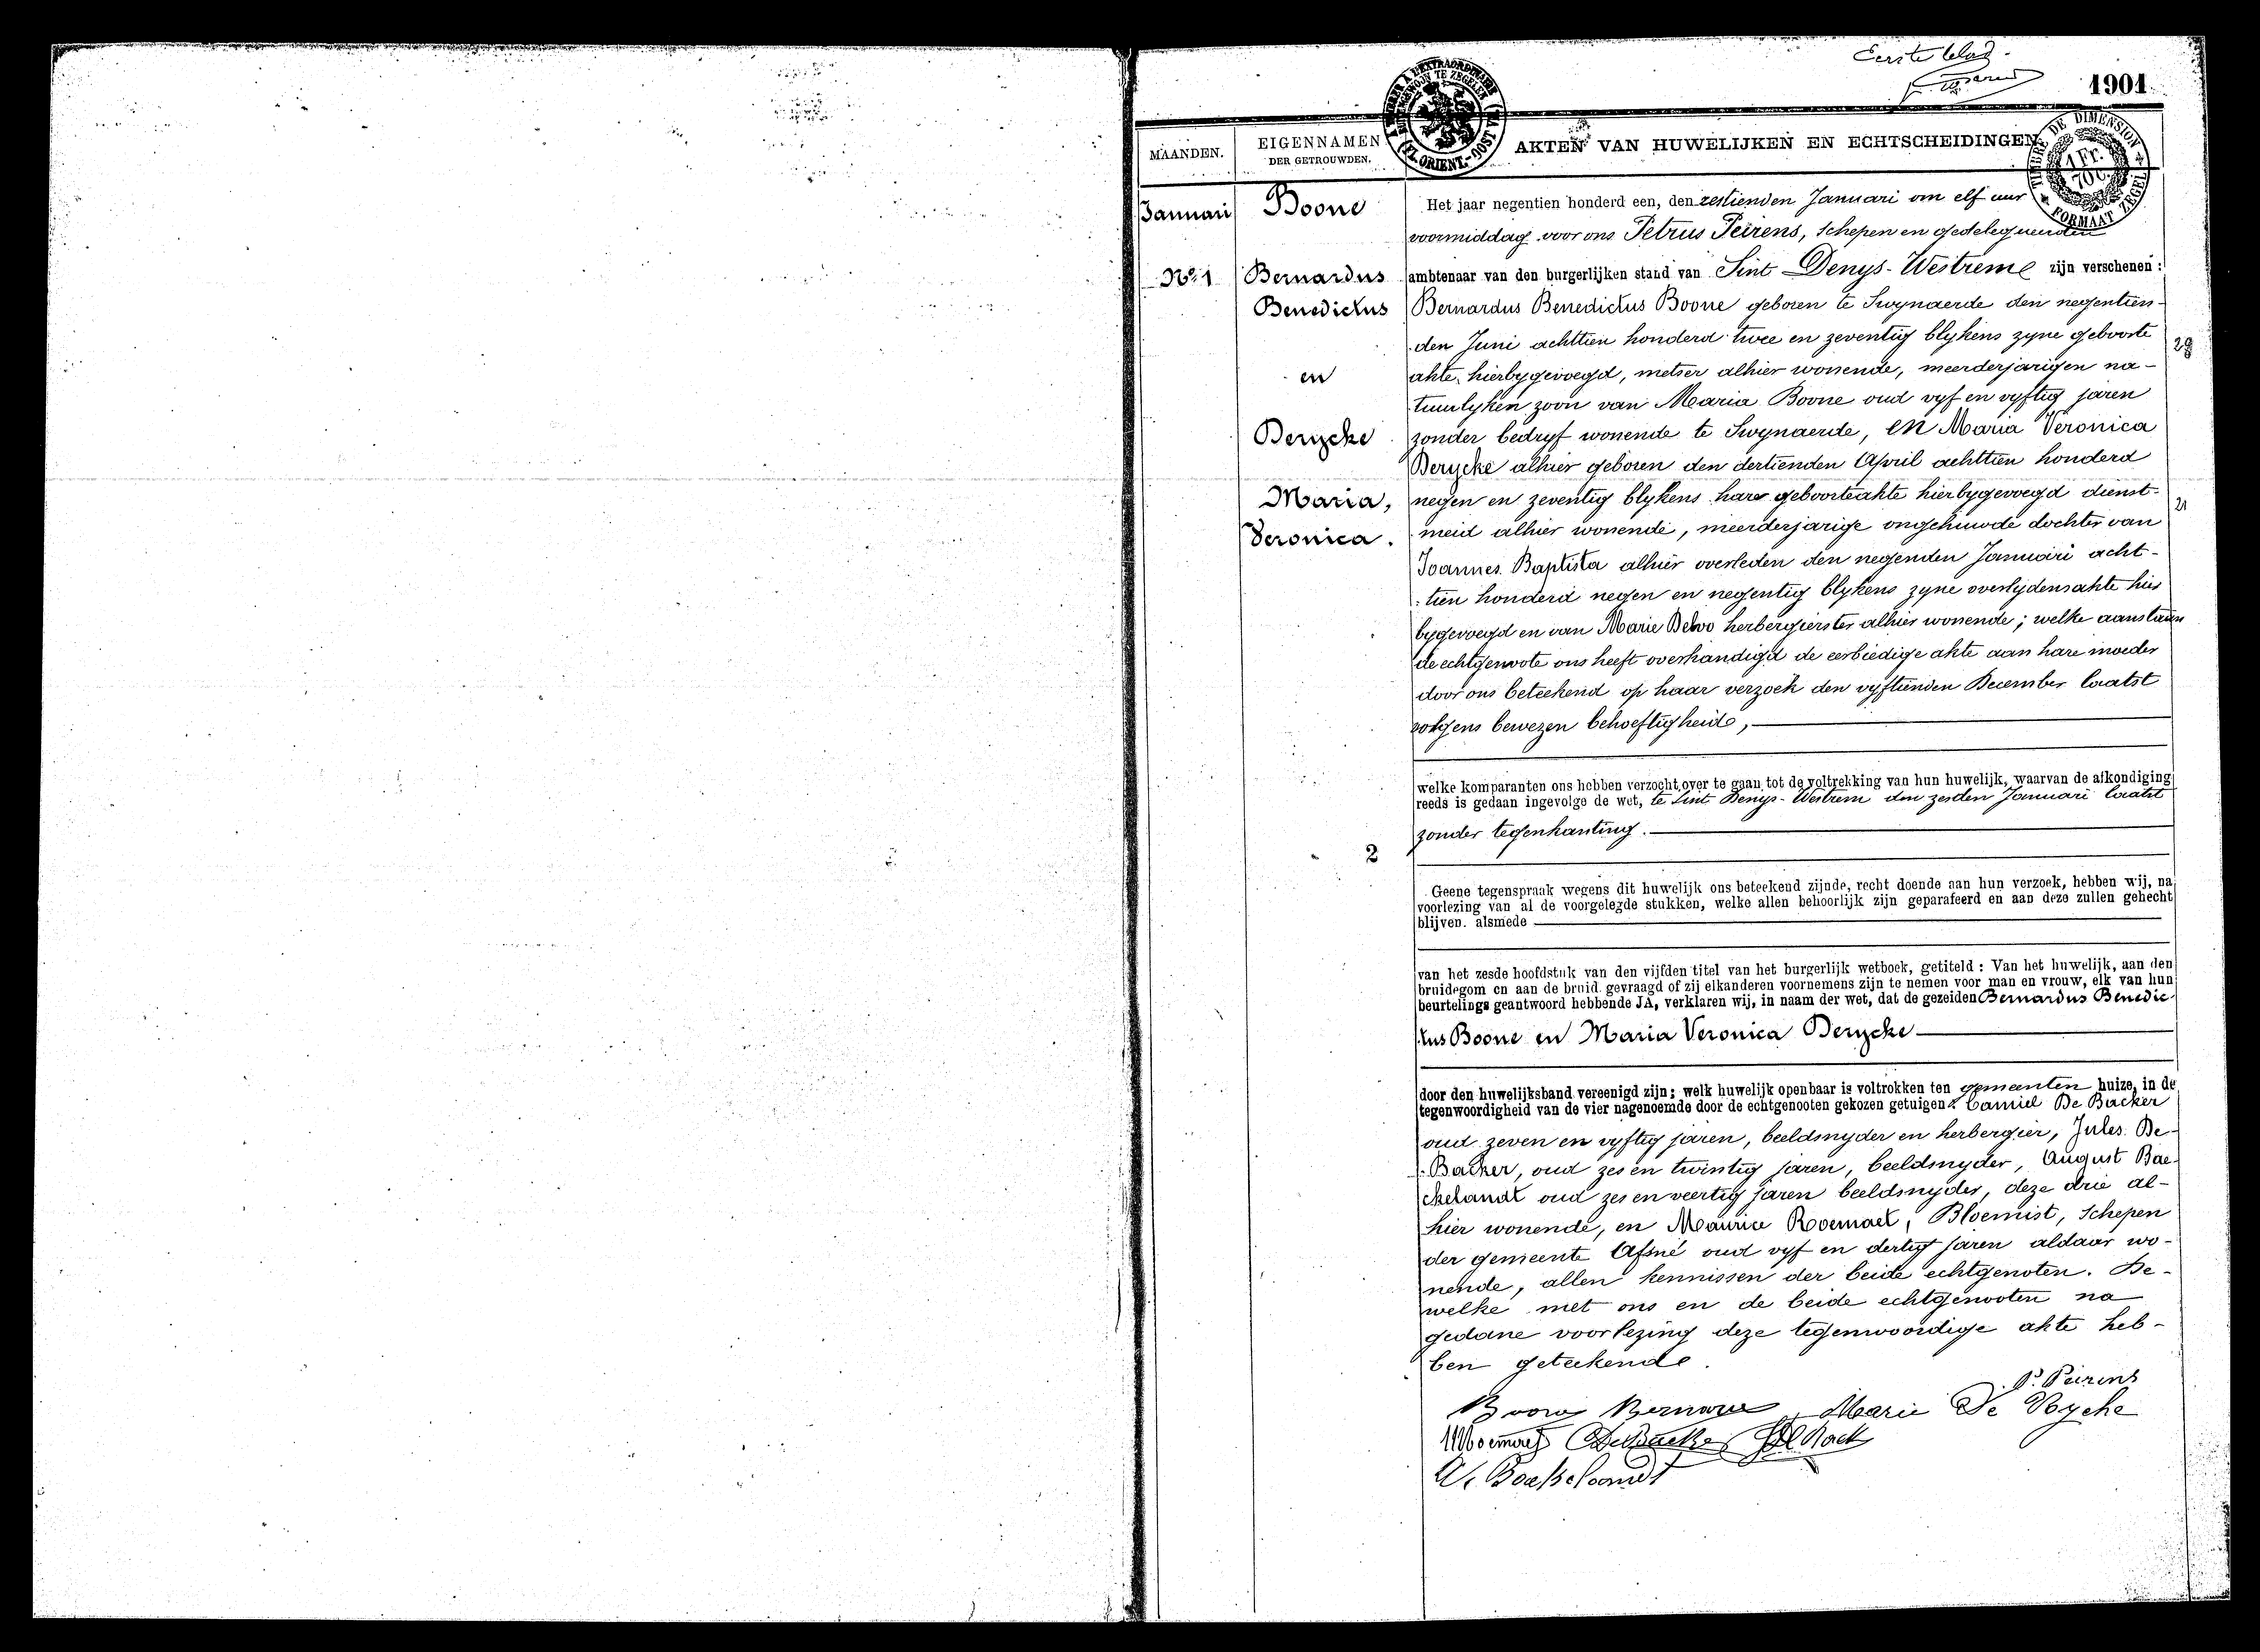 Eerste blad.
1901
MAANDEN.
EIGENNAMEN
DER GETROUWDEN.
AKTEN VAN HUWELIJKEN EN ECHTSCHEIDINGEN
TIMBRE DE DIMENSION
1 Fr.
FORMAAT ZEGEL
Januari
Boone
Nº 1
Bernardus
Benedictus
en
Derycke
Maria,
Veronica.
2
Het jaar negentien honderd een, den zestienden Januari om elf uur
voormiddag voor ons Petrus Peirens, Schepen en gedelegueerden
ambtenaar van den burgerlijken stand van Sint Denys-Westreme zijn verschenen:
Bernardus Benedictus Boone geboren te Swynaerde den negentien-
den Juni achttien honderd twee en zeventig blykens zyne geboorte
akte, hierbygevoegd, metser alhier wonende, meerderjarigen na-
tuurlyken zoon van Maria Boone oud vyf en vyftig jaren
zonder bedryf wonende te Swynaerde, en Maria Veronica
Derycke alhier geboren den dertienden April achttien honderd
negen en zeventig blykens hare geboorteakte hierbygevoegd dienst-
meid alhier wonende, meerderjarige ongehuwde dochter van
Joannes Baptista alhier overleden den negenden Januari acht-
tien honderd negen en negentig blykens zyne overlydensakte hier
bygevoegd en van Marie herbergierster alhier wonende; welke aanstaan
de echtgenoote ons heeft overhandigd de eerbiedige akte aan hare moeder
door ons beteekend op haar verzoek den vyftienden December laatst
volgens bewezen behoeftigheid,
welke komparanten ons hebben verzocht over te gaan tot de voltrekking van hun huwelijk, waarvan de afkondiging
reeds is gedaan ingevolge de wet, te Sint Denys-Westrem den zesden Januari laatst
zonder tegenkanting.
Geene tegenspraak wegens dit huwelijk ons beteekend zijnde, recht doende aan hun verzoek, hebben wij, na
voorlezing van al de voorgelegde stukken, welke allen behoorlijk zijn geparafeerd en aan deze zullen gehecht
blijven. alsmede
van het zesde hoofdstuk van den vijfden titel van het burgerlijk wetboek, getiteld: Van het huwelijk, aan den
bruidegom en aan de bruid gevraagd of zij elkanderen voornemens zijn te nemen voor man en vrouw, elk van hun
beurtelings geantwoord hebbende JA, verklaren wij, in naam der wet, dat de gezeiden Bernardus Benedic-
tus Boone en Maria Veronica Derycke
door den huwelijksband vereenigd zijn; welk huwelijk openbaar is voltrokken ten gemeenten huize, in de
tegenwoordigheid van de vier nagenoemde door de echtgenooten gekozen getuigen: Camiel De Backer
oud zeven en vyftig jaren, beeldsnyder en herbergier, Jules De-
Backer, oud zes en twintig jaren, beeldsnyder, August Bae-
ckelandt oud zes en veertig jaren beeldsnyder, deze drie al-
hier wonende, en Maurice Bloemist, Schepen
der gemeente Afsné oud vyf en dertig jaren aldaar wo-
nende, allen kennissen der beide echtgenoten. De-
welke met ons en de beide echtgenooten na
gedane voorlezing deze tegenwoordige akte heb-
ben geteekende.
P. Peirens
Boone Bernard Marie De Rycke